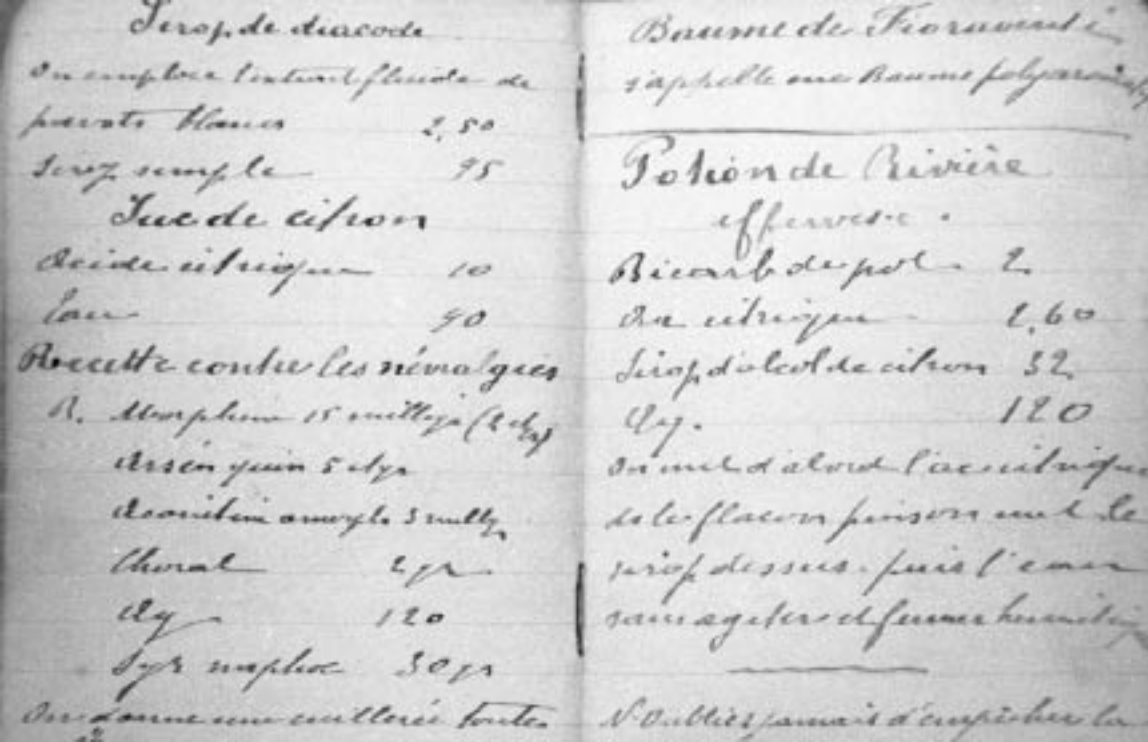 Sirop de diacode
On emploie l'extrait fluide de
pavots blancs 2,50
Siroz simple 95
Suc de citron
Acide citrique 10
Eau 90
Recette contre les névralgies
R. Morphine 15 milligr
Arsen quin 5 ctgr
Aconitin amorph 3 millgr
Choral 2 gr
Aq 120
Syr 30 gr
On donne une cuillerée toutes
Baume de Fioraventi
s'appelle une Baume
Potion de Rivière
efferves.
Bicarb de pot 2
citrique 2,60
Sirop d'alcol de citron 32
Aq. 120
On met d'abord l'ac citrique
ds le flacon puis on met le
sirop dessus. puis l'eau
sans agiter et fermer
N'oubliez jamais d'empêcher la